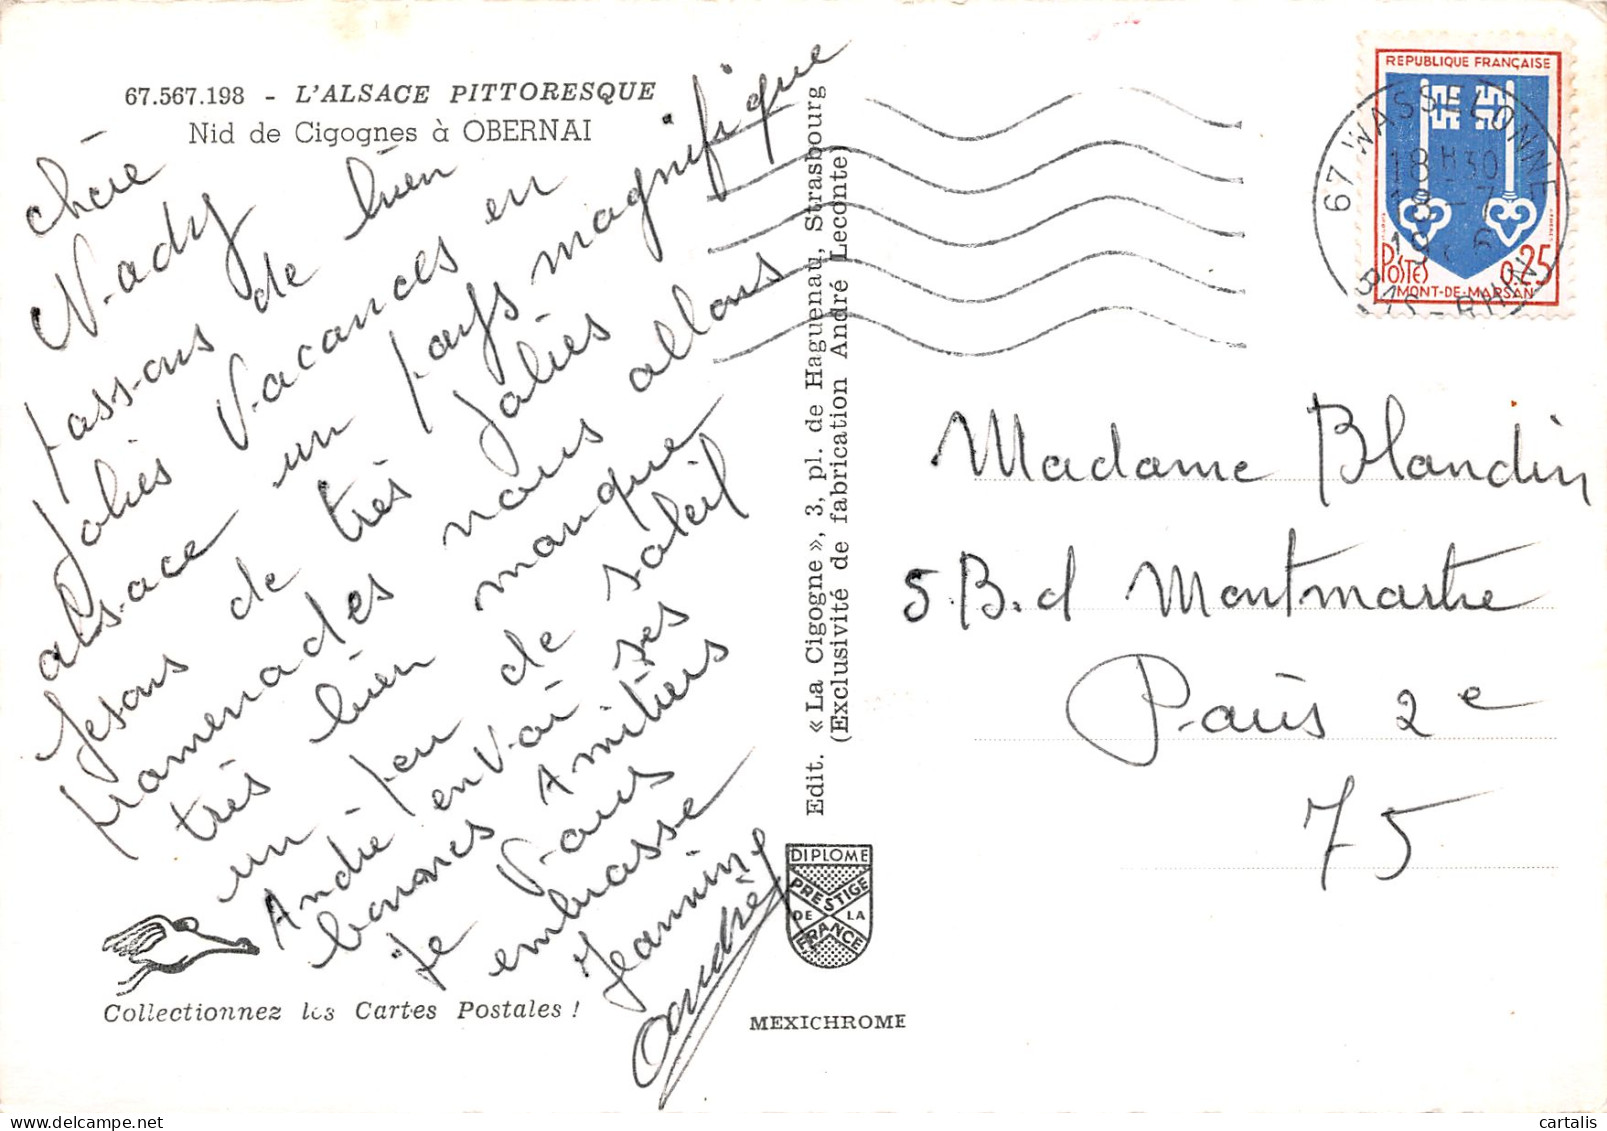 67.567.198 - L'ALSACE PITTORESQUE
Nid de Cigognes à OBERNAI
chère
Nady
passons de bien
jolies Vacances en
alsace un pays magnifique
fesons de très jolies
promenades nous allons
très bien manque
un peu de soleil
André envoi ses
bonnes Amitiers
je Vous
embrasse
Jeannine
andré
Collectionnez les Cartes Postales !
Edit. « La Cigogne », 3, pl. de Haguenau, Strasbourg
(Exclusivité de fabrication André Leconte)
DIPLOME
PRESTIGE
DE LA
FRANCE
MEXICHROME
REPUBLIQUE FRANÇAISE
POSTES 0,25
MONT-DE-MARSAN
67 WASSELONNE
18H30
18-7
19 6
BAS-RHIN
Madame Blandin
5.B.d Montmartre
Paris 2e
75
cartalis